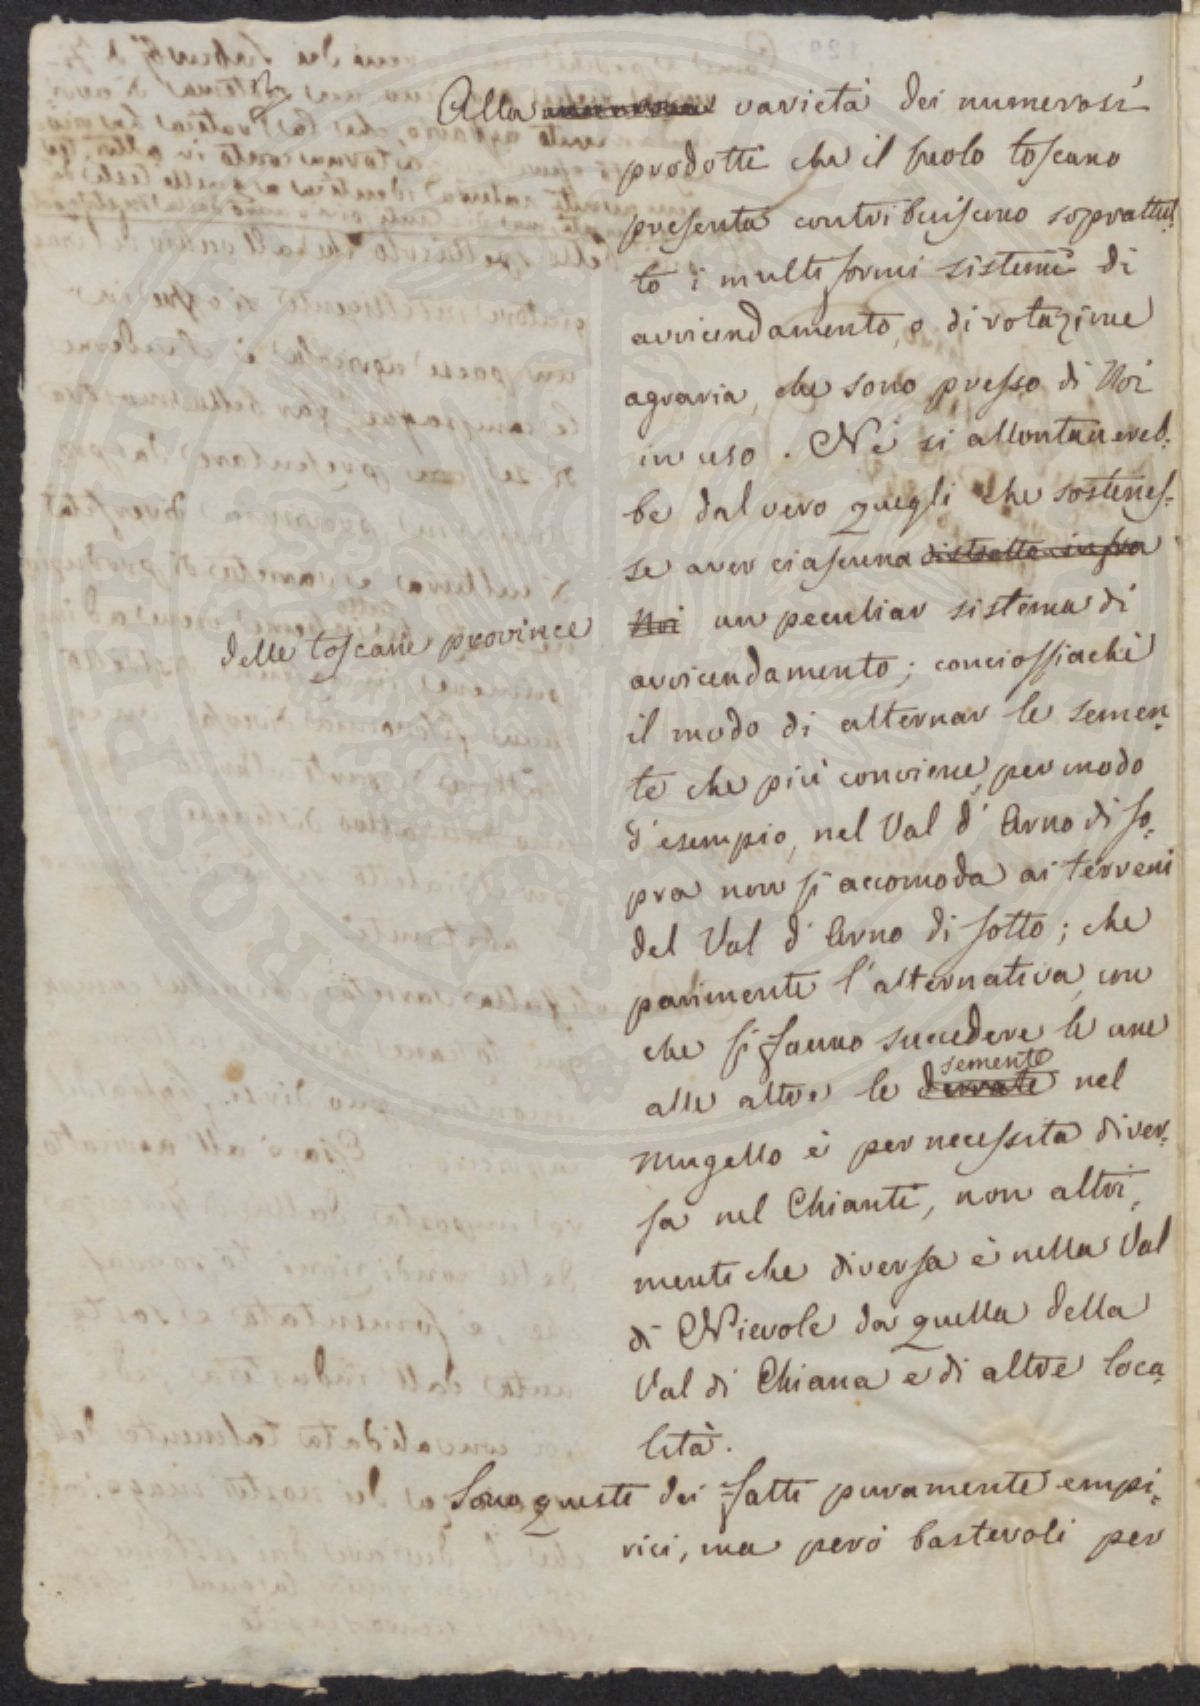 Alla varietà dei numerosi
prodotti che il suolo toscano
presenta contribuiscono soprattut:
to i multiformi sistemi di
avvicendamento, o di rotazione
agraria, che sono presso di Noi
in uso. Nè si allontanereb:
be dal vero quegli che sostenes:
se aver ciascuna distretto infra
Noi un peculiar sistema di
delle toscane province
avvicendamento; conciossiachè
il modo di alternar le semen,
te che più conviene, per modo
d'esempio, nel Val d'Arno di so,
pra non si accomoda ai terreni
del Val d'Arno di sotto; che
parimente l'alternativa, con
che si fanno succedere le une
semente
alle altre le derrate nel
Mugello è per necessità diver,
sa nel Chianti, non altri,
menti che diversa è nella Val
di Nievole da quella della
Val di Chiana e di altre loca,
lità.
Sono queste dei fatti puramente empi,
rici, ma però bastevoli per